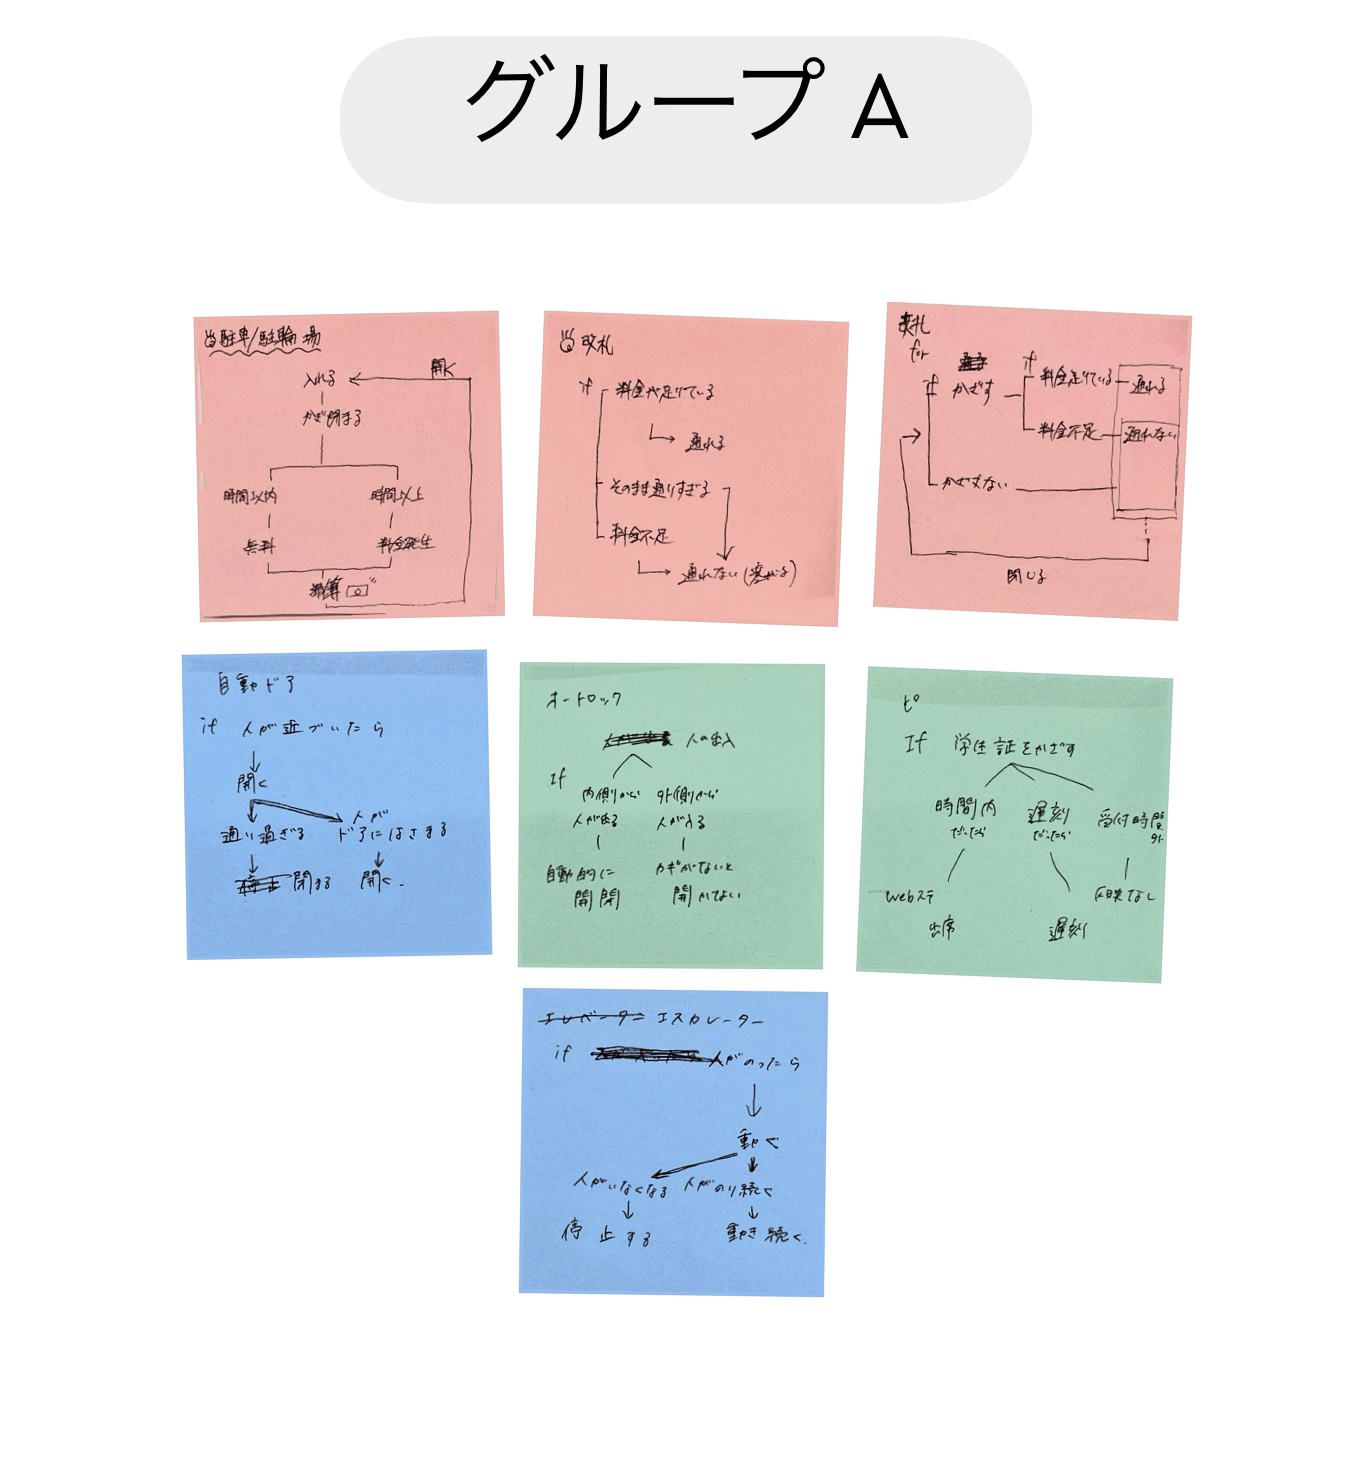 グループ A
駐車/駐輪場
開く
入れる
かぎ閉まる
時間以内
時間以上
無料
料金発生
精算
改札
if
料金が足りている
通れる
そのまま通りすぎる
料金不足
通れない(塞がる)
改札
for
if
かざす
if
料金足りている
通れる
料金不足
通れない
かざさない
閉じる
自動ドア
if 人が近づいたら
開く
通り過ぎる
人が
ドアにはさまる
閉まる
開く.
オートロック
人の出入
If
内側から
人が出る
外側から
人が入る
自動的に
開閉
カギがないと
開かない
ピ
If 学生証をかざす
時間内
だったら
遅刻
だったら
受付時間外
Webステ
出席
遅刻
反映なし
エレベーター エスカレーター
if 人がのったら
動く
人がいなくなる
人がのり続く
停止する
動き続く.